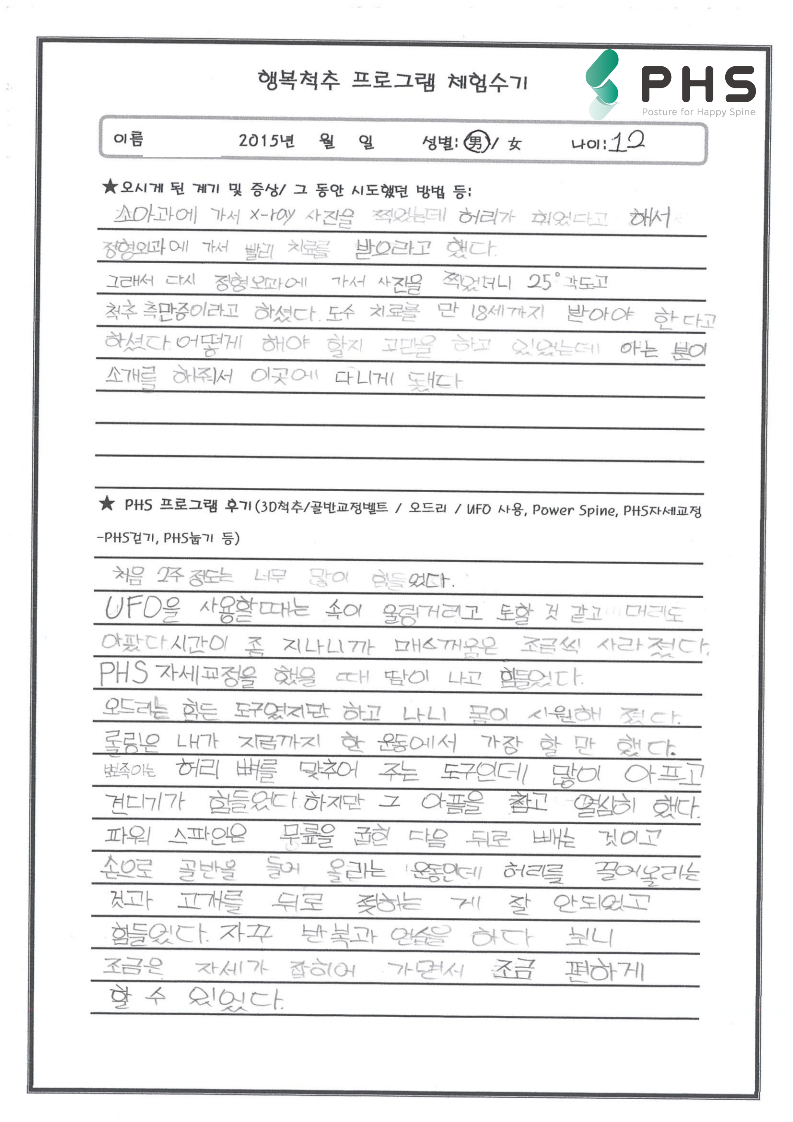 행복척추 프로그램 체험수기
PHS
Posture for Happy Spine
이름 2015년 월 일 성별: 男/ 女 나이: 12
★오시게 된 계기 및 증상/ 그 동안 시도했던 방법 등:
소아과에 가서 x-ray 사진을 찍었는데 허리가 휘었다고 해서
정형외과에 가서 빨리 치료를 받으라고 했다.
그래서 다시 정형외과에 가서 사진을 찍었더니 25° 각도고
척추 측만증이라고 하셨다. 도수 치료를 만 18세까지 받아야 한다고
하셨다 어떻게 해야 할지 고민을 하고 있었는데 아는 분이
소개를 해줘서 이곳에 다니게 됐다
★ PHS 프로그램 후기(3D척추/골반교정벨트 / 오드리 / UFO 사용, Power Spine, PHS자세교정
-PHS걷기, PHS눕기 등)
처음 2주 정도는 너무 많이 힘들었다.
UFO을 사용할때는 속이 울렁거리고 토할 것 같고 머리도
아팠다 시간이 좀 지나니까 매스꺼움은 조금씩 사라졌다.
PHS 자세교정을 했을 때 땀이 나고 힘들었다.
오드리는 힘든 도구였지만 하고 나니 몸이 시원해 졌다.
롤링은 내가 지금까지 한 운동에서 가장 할 만 했다.
뾰족이는 허리 뼈를 맞추어 주는 도구인데 많이 아프고
견디기가 힘들었다 하지만 그 아픔을 참고 열심히 했다.
파워 스파인은 무릎을 굽힌 다음 뒤로 빼는 것이고
손으로 골반을 들어 올리는 운동인데 허리를 끌어올리는
것과 고개를 뒤로 젖하는 게 잘 안되었고
힘들었다. 자꾸 반복과 연습을 하다 보니
조금은 자세가 잡히어 가면서 조금 편하게
할 수 있었다.